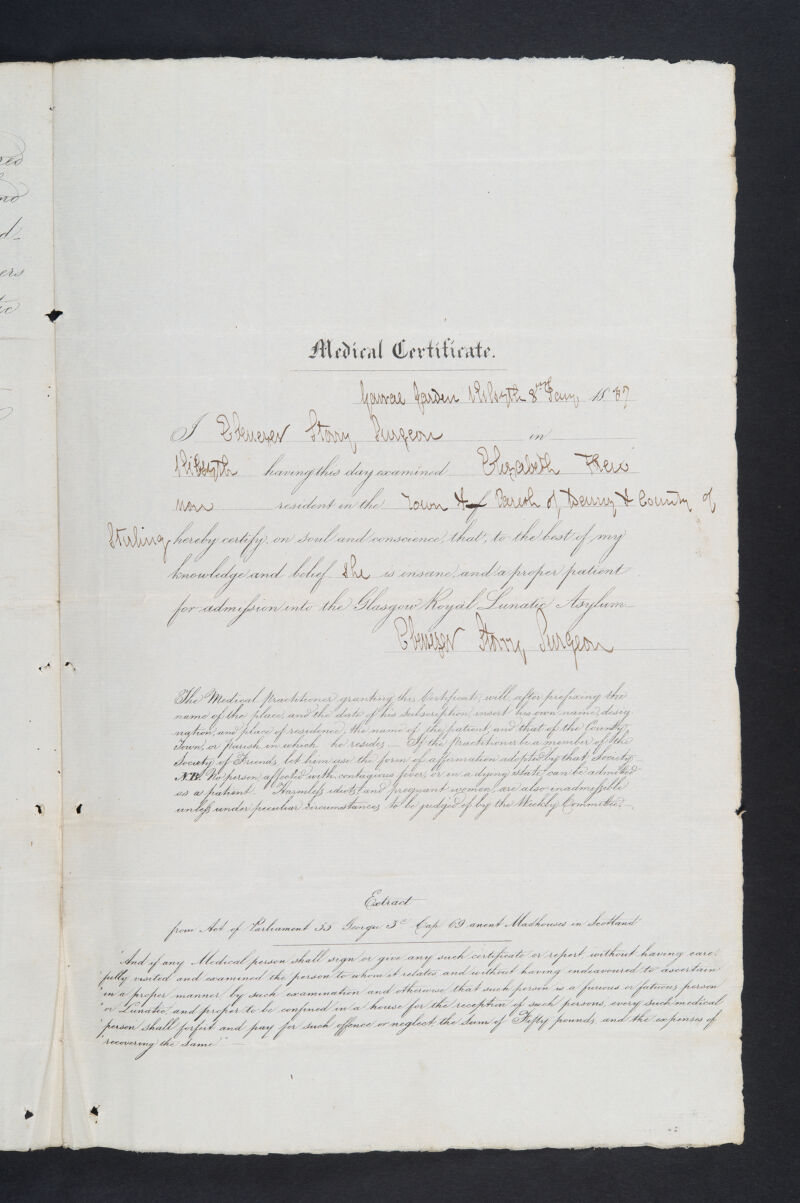 red
no
d-
ers
tic
Medical Certificate.
Garden Kilsyth 8th Jany 1837
I Ebenezer Storry Surgeon in
Kilsyth having this day examined Elizabeth
resident in the Town & Parish of Denny & County of
Stirling, hereby certify, on soul and conscience, that, to the best of my
knowledge and belief she is insane, and a proper patient
for admission into the Glasgow Royal Lunatic Asylum
Ebenezer Storry Surgeon
The Medical Practitioner granting this Certificate, will, after prefixing the
name of the place, and the date of his subscription, insert his own name, desig
nation, and place of residence, the name of the patient, and that of the County,
Town, or Parish in which he resides.— If the Practitioner be a member of the
Society of Friends, let him use the form of affirmation adopted by that Society.—
N.B. No person affected with contagious fever, or in a dying state, can be admitted
as a patient. Harmless idiots, and pregnant women, are also inadmissible
unless under peculiar circumstances, to be judged of by the Weekly Committee.—
Extract
from Act of Parliament 55 George 3d Cap 69 anent Madhouses in Scotland
"And if any Medical person shall sign or give any such certificate or report without having care-
fully visited and examined the person to whom it relates, and without having endeavoured to ascertain
"in a proper manner by such examination and otherwise, that such person is a furious or fatuous person
or Lunatic, and proper to be confined in a house for the reception of such persons, every such medical
"person shall forfeit and pay for such offence or neglect, the sum of Fifty pounds, and the expenses of
"recovering the same"—